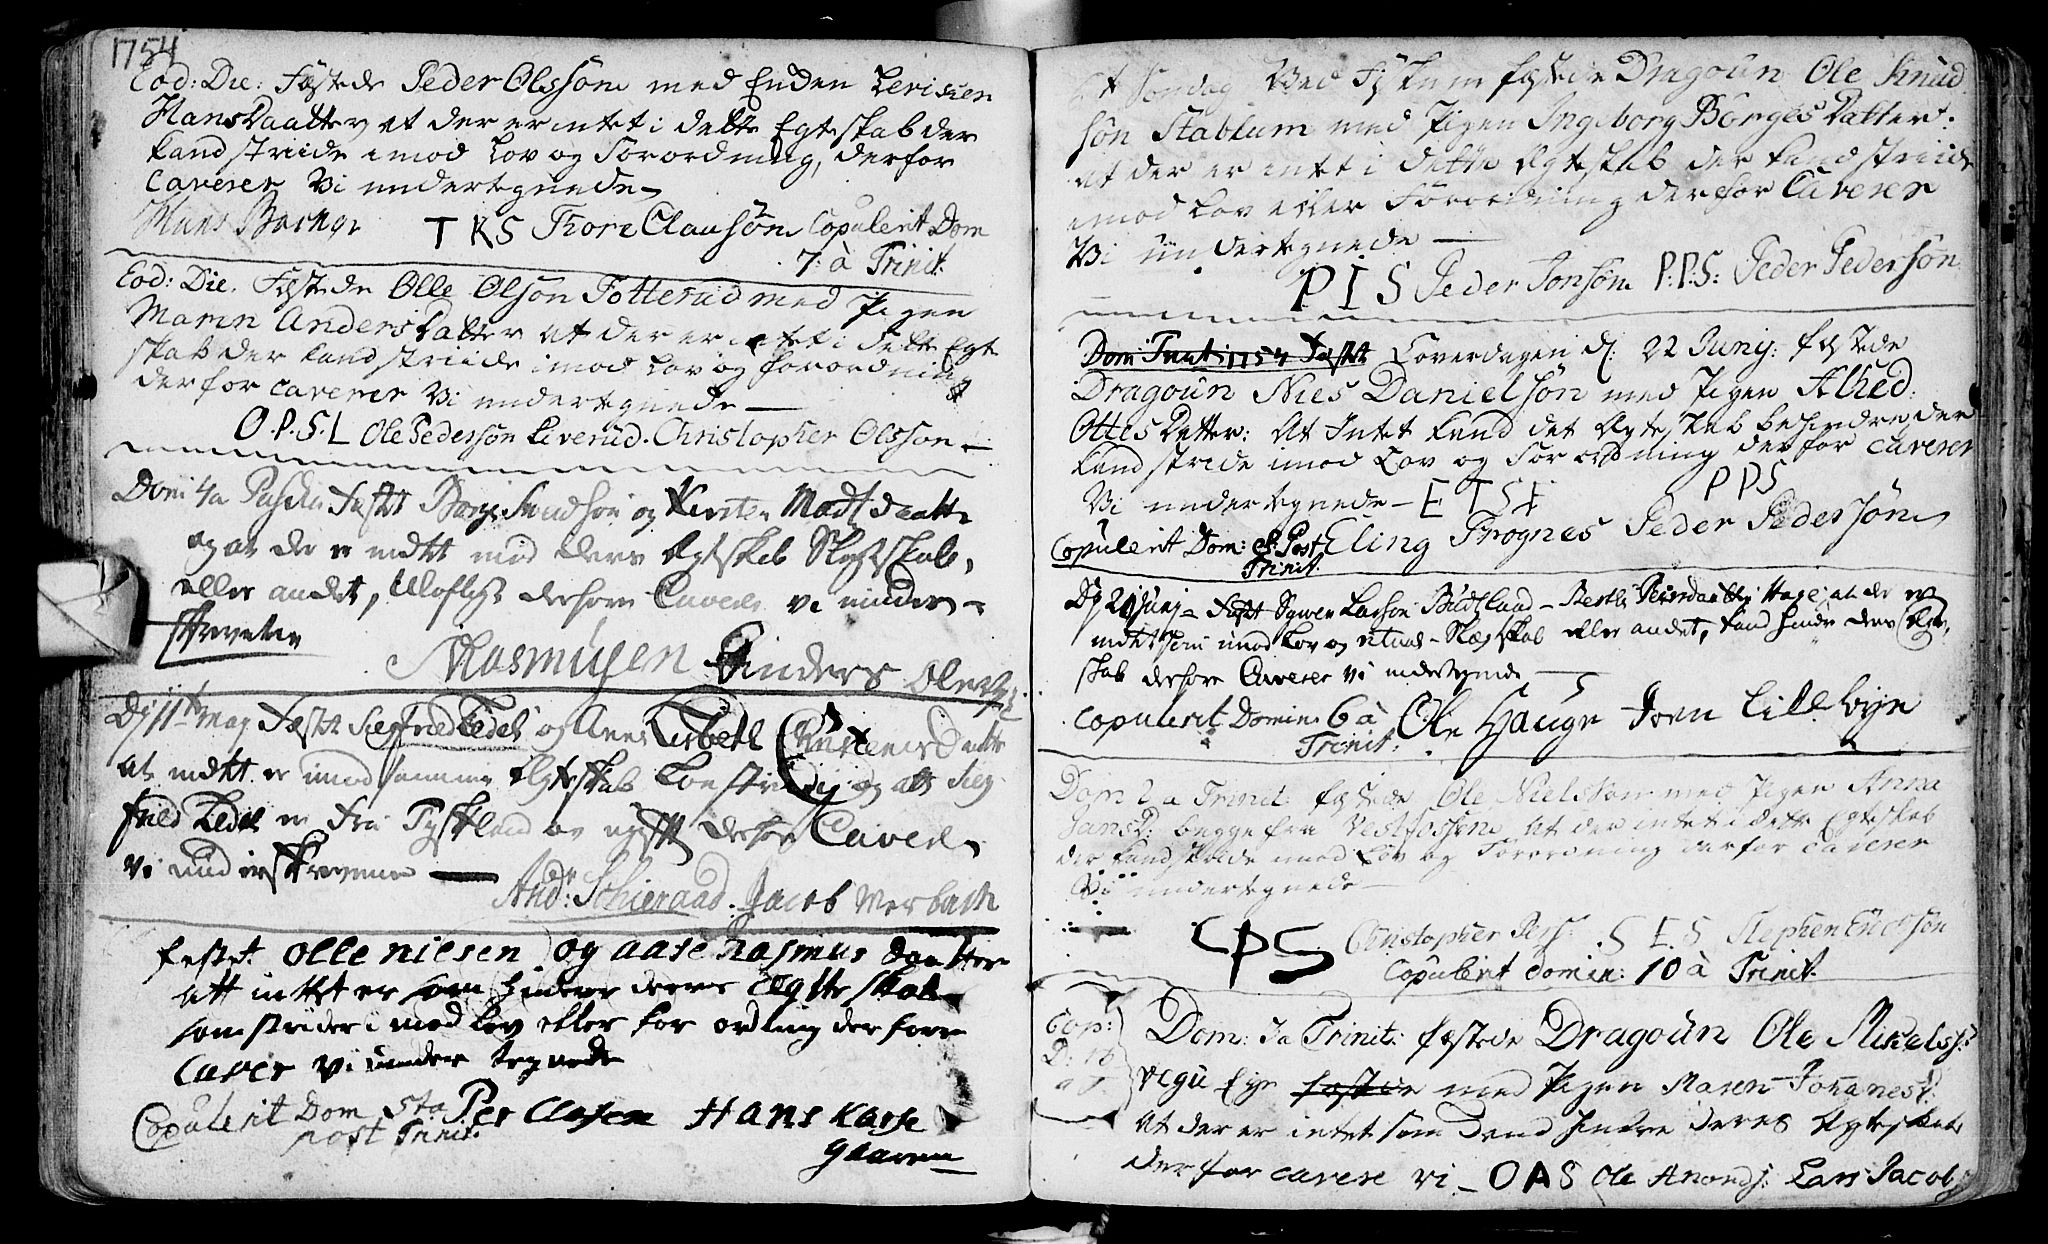 1754
Eod: Die: Festede Peder Olssøn med Enden Lerisken
Hans Daatter at der er intet i dette Egteskab der
kand striide imod Lov og Forordning, derfor
Caverer Vi undertegnede
Hans T K S Thore Claussøn Copulerit Dom
7: à Trinit.
Eod: Die. Festede Olle Olsøn Fotterud med Pigen
Maren Anders Datter at der er intet i dette Egte
skab der kand striide imod Lov og forordning
derfor caverer Vi undertegnede —
O.P.S.L Ole Pedersøn Liverud. Christopher Olsson
Dom 4a Pasch: Festet Knudsøn og Kirsten Madtz daatter
og at der er indtet mod deres Egteskab Slegtskab,
eller andet, Uloflig derfore Caverer vi under-
skrevetne
Rasmusen Anders Olersen
Dj 11te May Festet Siegfried Kedel og Ane Lisbeth Christensdaatter
at indtet er imod samme Egteskab og at Sieg
fried Kedel er fra Tyskland og ugift derfor Caverer
Vi underskrevne —
And: Schieraad. Jacob Werbach
festet Olle niesen og aase Rasmus daatter
att inttet er som hinder deres Egtte skab
som strider i mod lov eller for ordning der fore
Caver Vi under tegnede
Copulerit Dom 5ta Per Clasen Hans Karse
post Trinit. gaaren
Søndag Ved Fiskum festede Dragoun Ole Knud
søn Stablum med Pigen Ingeborg Børges Datter:
at der er intet i dette Egteskab der kand striide
imod Lov eller Forordning derfor Caverer
Vi undertegnede —
P I S Peder Jonsøn P:P:S: Peder Pedersøn
Dom Trinit: 1754 Festet Loverdagen d: 22 Junij: festede
Dragoun Nies Danielsøn med Pigen Alhed:
Ottes Datter: At Intet kand det Egteskab behindre der
kand stride imod Lov og Forordning derfor caverer
Vi undertegnede — E T S F P P S
Copulerit Dom: 8 Post Eling Frognes Peder Pedersøn
Trinit.
Dj 21 Junj - Festet Larsøn Budtland - Berthe Pedersdaatter Hage, at der er
indtet som imod Lov og Slegtskab eller andet, kand hindre deres Egte,
skab derfore Caverer Vi undertegnede —
Copulerit Domin: 6 à Ole Hauge Joen Lillebye
Trinit:
Dom 2 a Trinit: festede Ole Nielssøn med Pigen Anna
JansD: begge fra Vestfossen, at der intet i dette Egteskab
der kand stride imod Lov og Forordning derfor caverer
Vi undertegnede —
C P S Christopher Pers: S E S Stephen Erichsøn
Copulerit Domin: 10 à Trinit.
Cop: Dom: 3a Trinit: festede Dragoun Ole Mikels:
Eje festede med Pigen Maren Johanesd:
at der er intet som kand hindre deres Egteskab
derfor cavere vi - O A S Ole Anonds: Lars Jacobs: